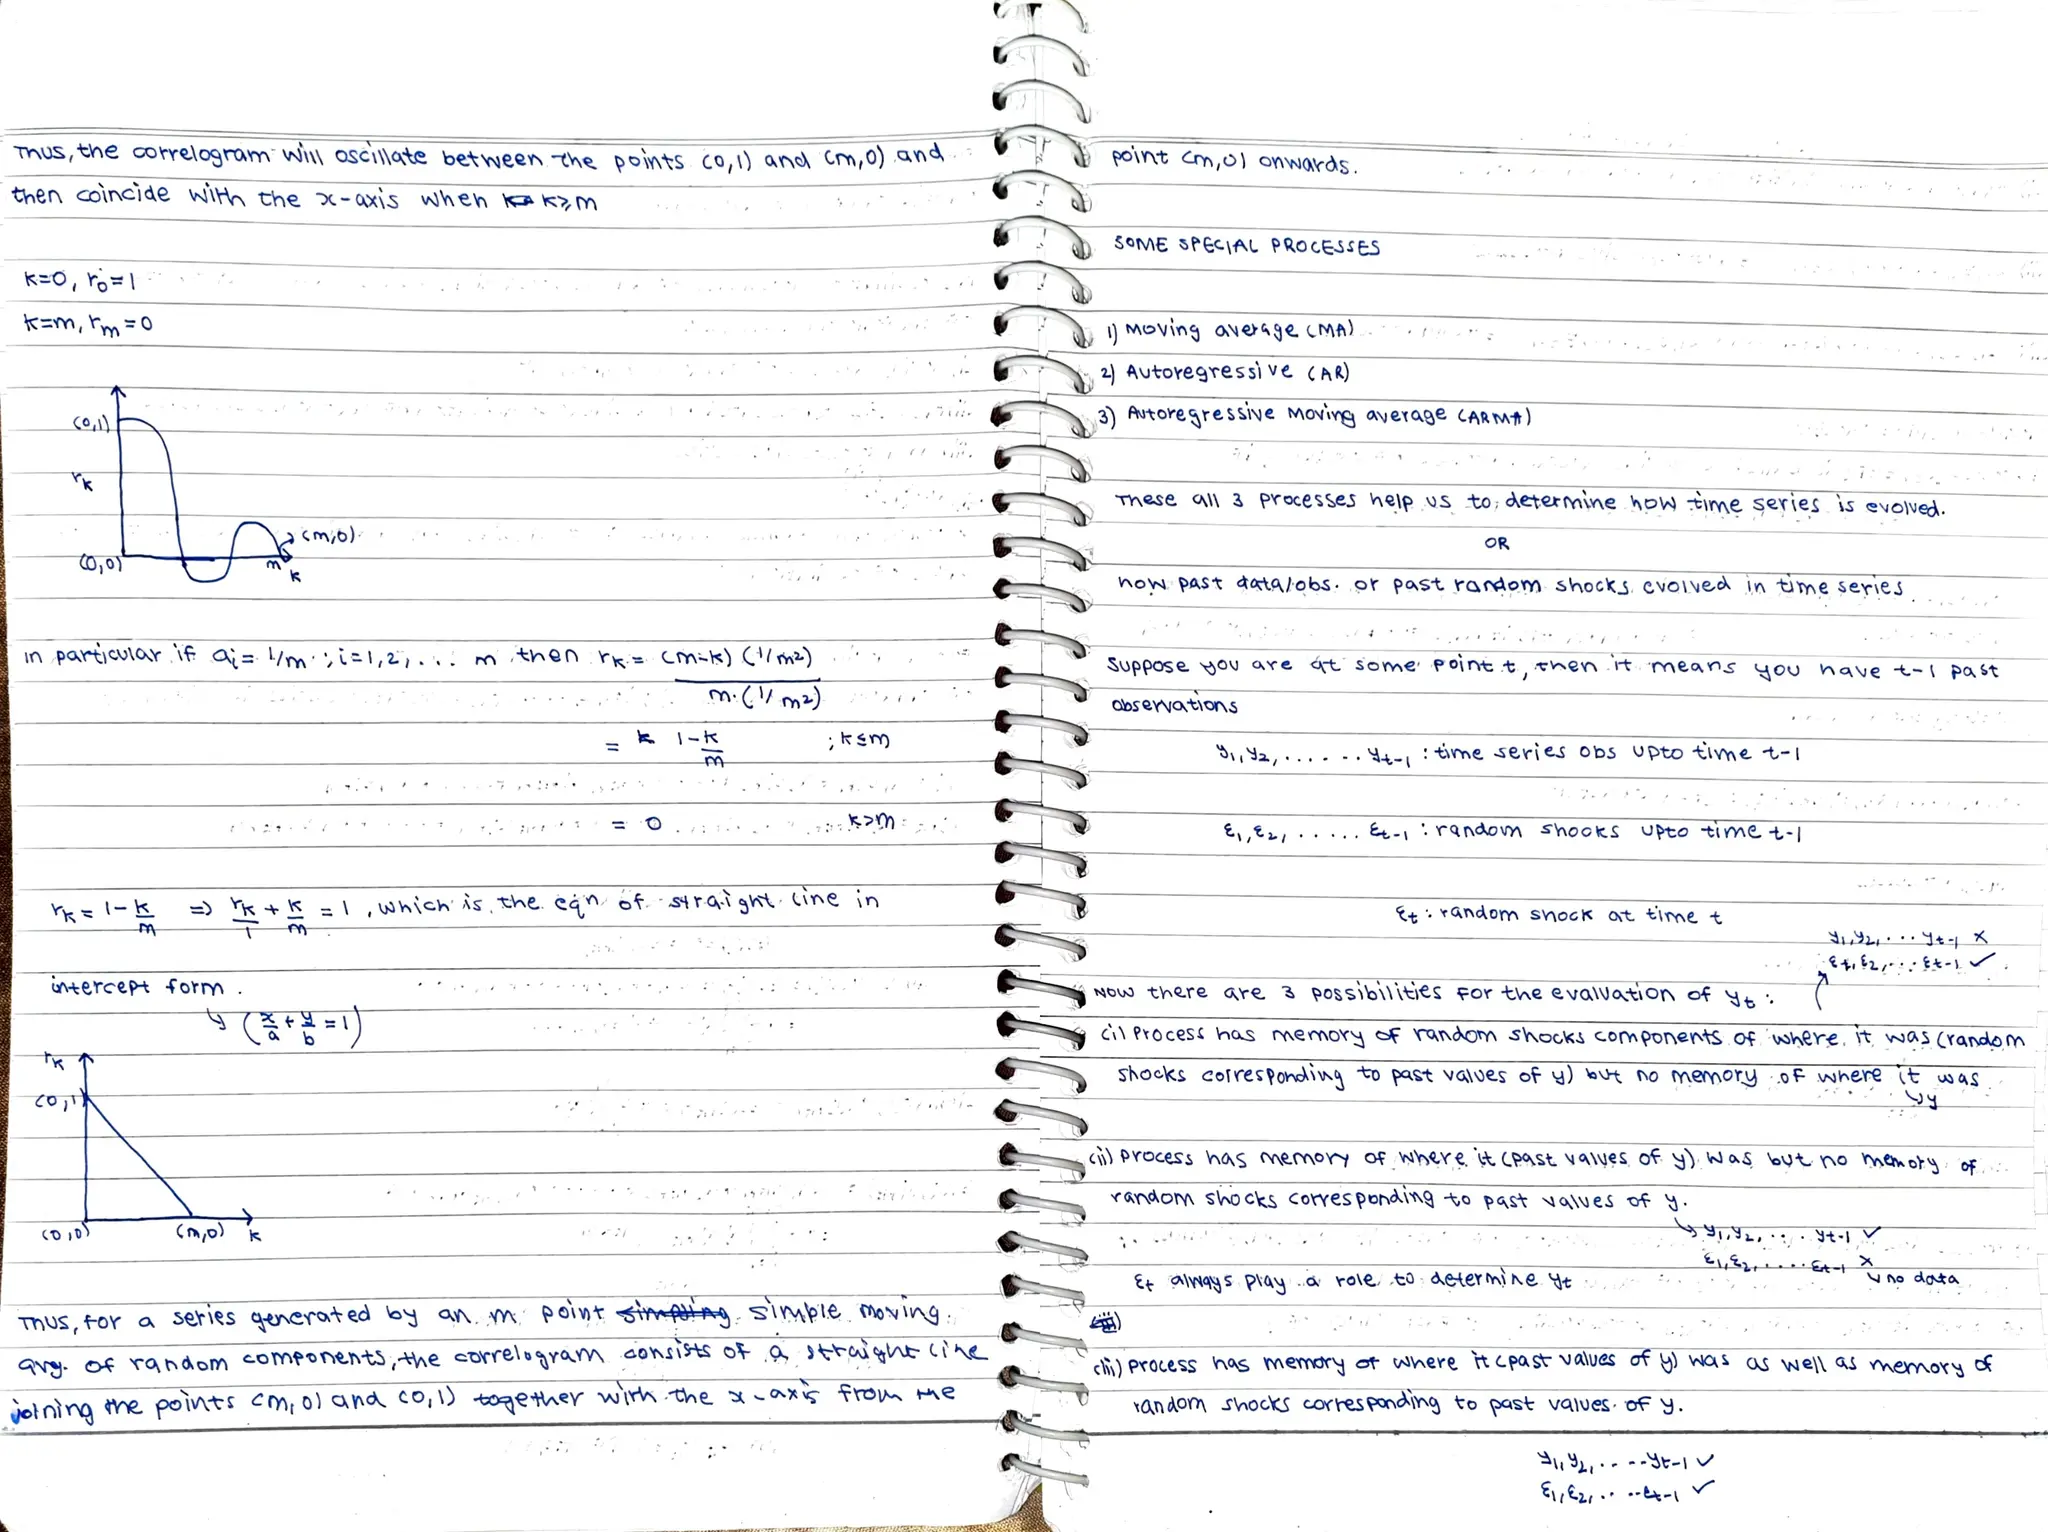 Thus, the correlogram will oscillate between the points (0,1) and (m,0) and
then coincide with the x-axis when k≥m
k=0, r0=1
k=m, rm=0
(0,1)
rk
(m,0)
(0,0)
m
k
in particular if ai = 1/m ; i=1,2,... m then rk = (m-k) (1/m2)
m.(1/m2)
= 1-k/m ; k≤m
= 0 ; k>m
rk = 1-k/m => rk/1 + k/m = 1, which is the eqn of straight line in
intercept form.
(x/a + y/b = 1)
rk
(0,1)
(0,0) (m,0) k
Thus, for a series generated by an m point simpling simple moving
avg. of random components, the correlogram consists of a straight line
joining the points (m,0) and (0,1) together with the x-axis from the
point (m,0) onwards.
SOME SPECIAL PROCESSES
1) Moving average (MA)
2) Autoregressive (AR)
3) Autoregressive Moving average (ARMA)
These all 3 processes help us to determine how time series is evolved.
OR
how past data/obs. or past random shocks evolved in time series
Suppose you are at some point t, then it means you have t-1 past
observations
y1, y2, ...... yt-1 : time series obs upto time t-1
ε1, ε2, ..... εt-1 : random shocks upto time t-1
εt : random shock at time t
y1, y2, ... yt-1 ×
εt, ε2, ... εt-1 ✓
Now there are 3 possibilities for the evaluation of yt :
(i) Process has memory of random shocks components of where it was (random
shocks corresponding to past values of y) but no memory of where it was
↳y
(ii) Process has memory of where it (past values of y) was but no memory of
random shocks corresponding to past values of y.
↳ y1, y2, .... yt-1 ✓
ε1, ε2, .... εt-1 ×
↳ no data
εt always play a role to determine yt
(iii) Process has memory of where it (past values of y) was as well as memory of
random shocks corresponding to past values of y.
y1, y2, .... yt-1 ✓
ε1, ε2, .... εt-1 ✓